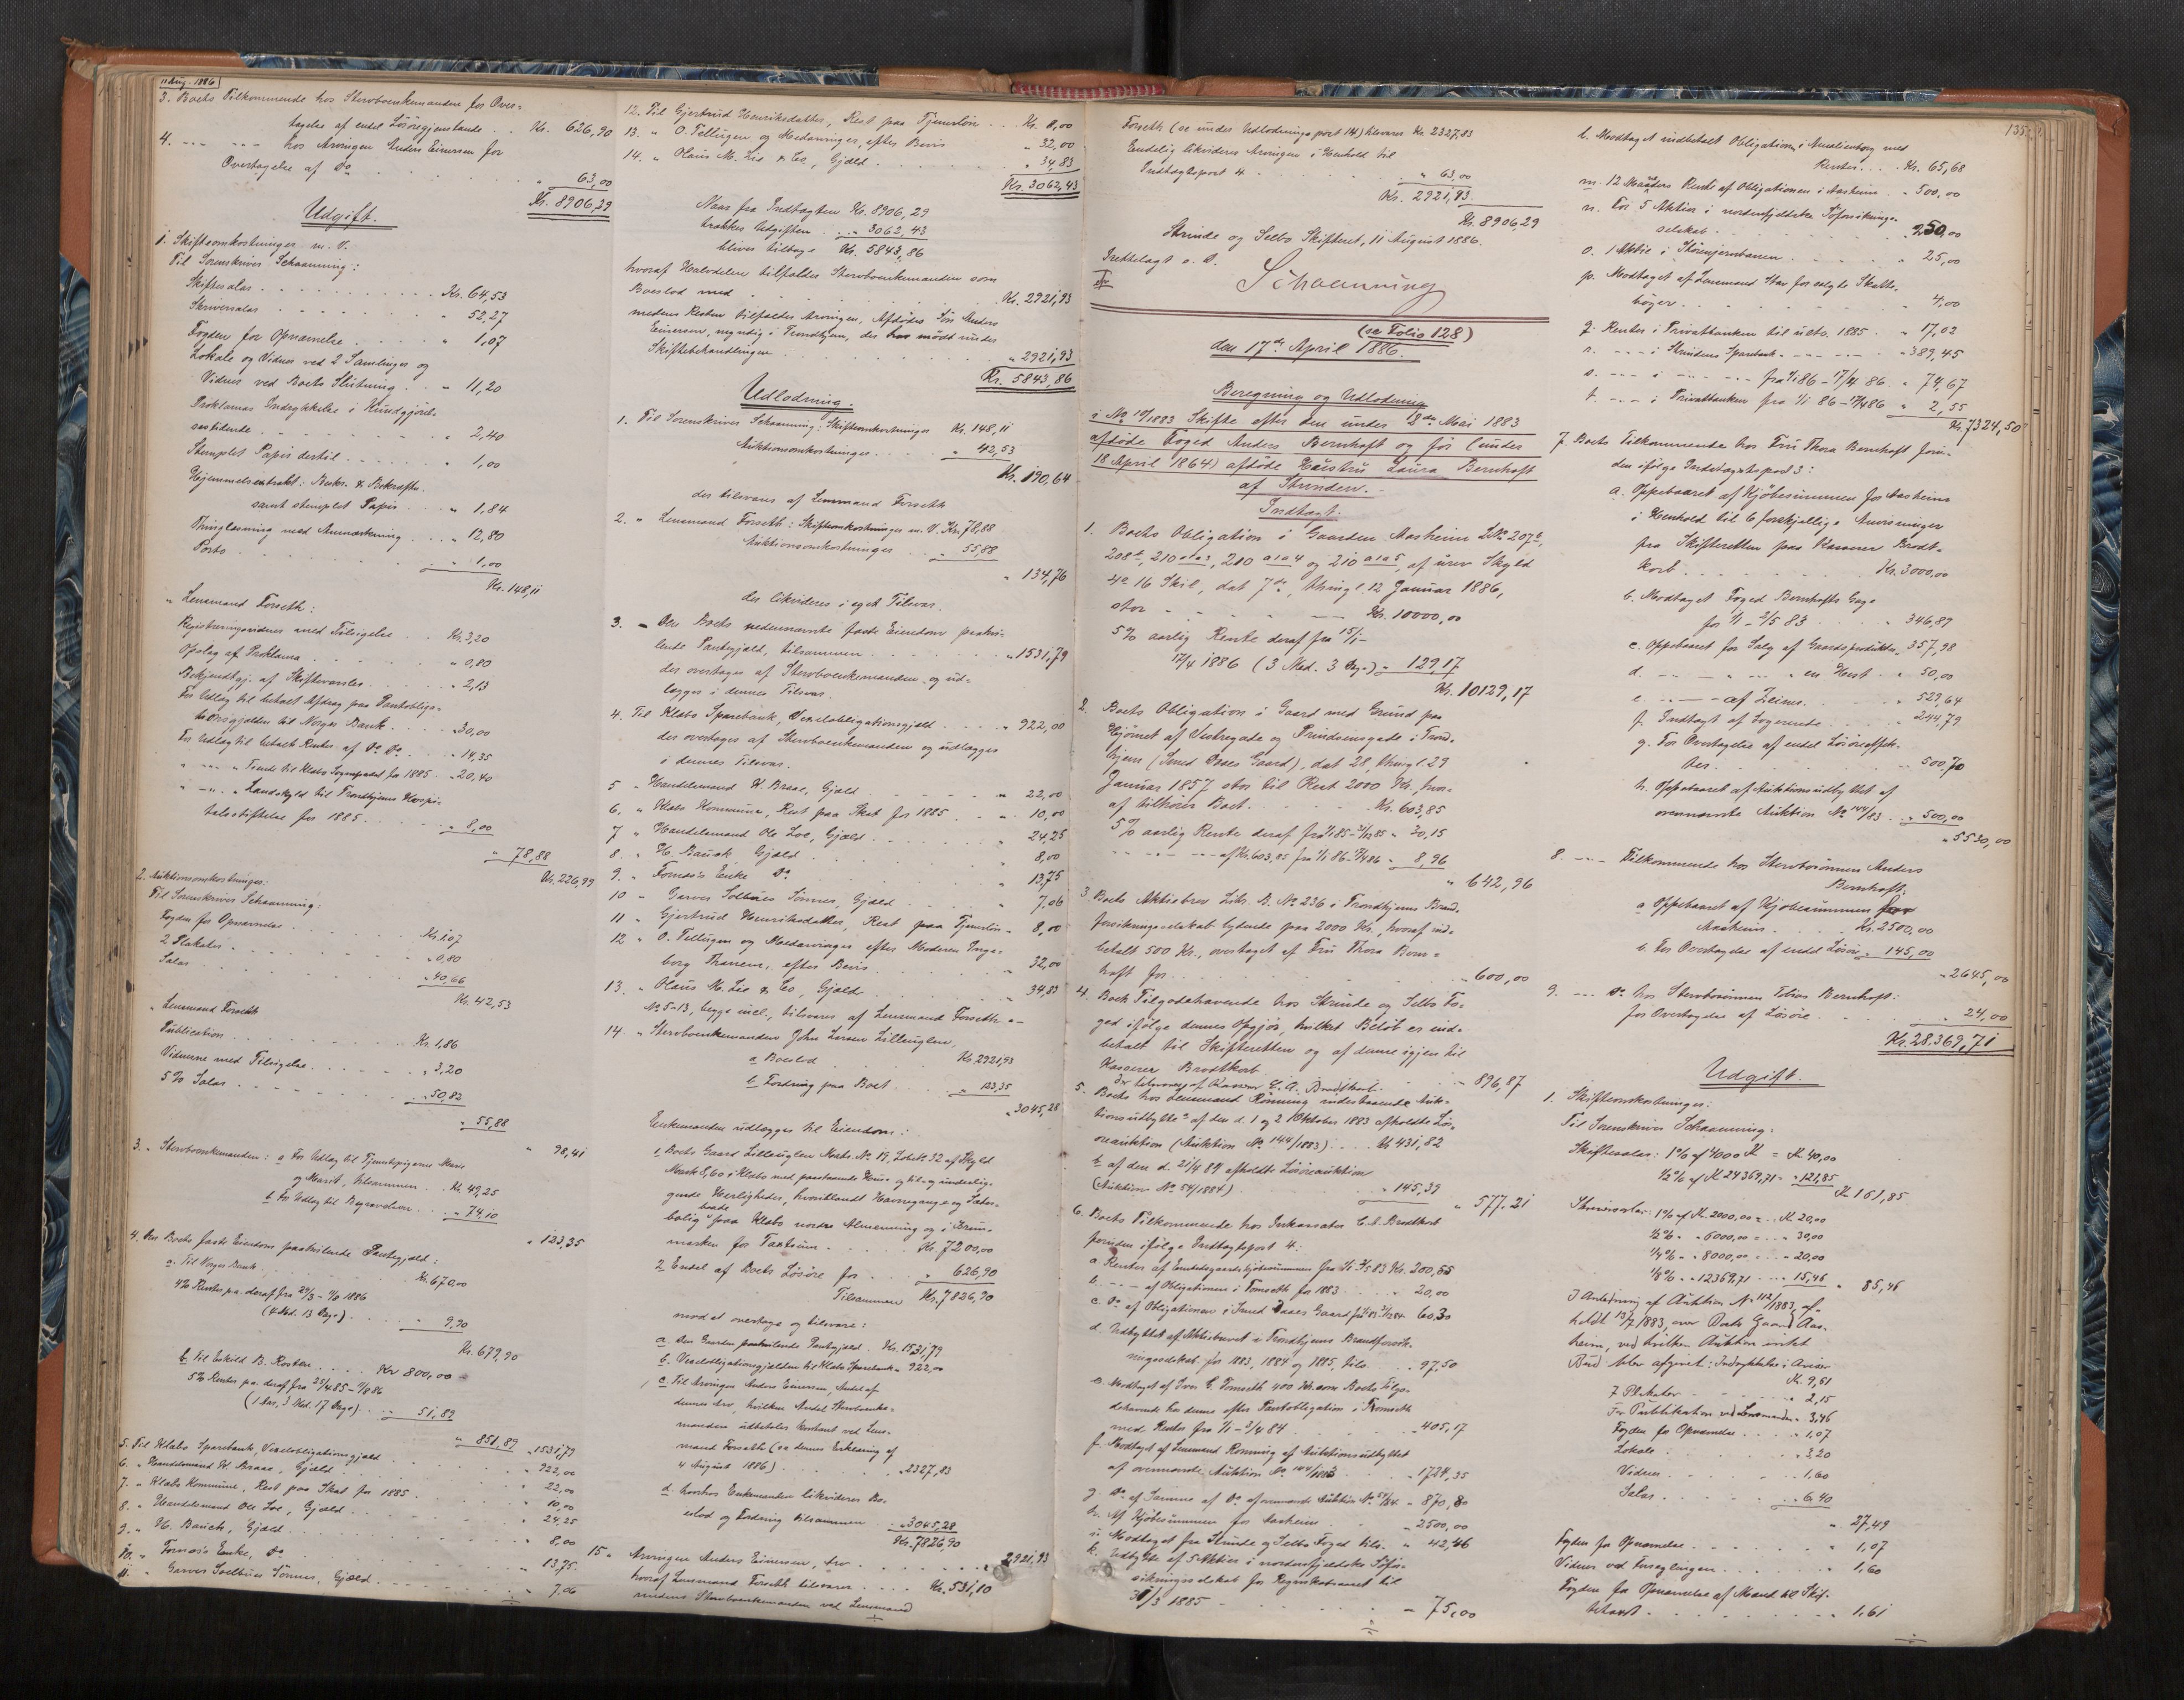 11 Aug. 1886
3. Boets Tilkommende hos Stervboenkemanden for Over-
tagelse af endel Lösöregjenstande . . Kr. 626,90
4. --- --- hos Arvingen Anders Einersen for
Overtagelse af Do . . . " 63,00
Kr. 8906,29
Udgift.
1. Skifteomkostninger m. V.
Til Sorenskriver Schaanning:
Skiftesalær . . . Kr. 64,53
Skriversalær . . . " 52,27
Fogden for Opnævnelse . . " 1,07
Lokale og Vidner ved 2 Samlinger og
Vidner ved Boets Slutning . . " 11,20
Proklamas Indrykkelse i Kundgjörel-
sestidende . . . " 2,40
Stemplet Papir dertil . . . " 1,00
Hjemmelsextrakt: Beskr. & Bekræftn.
samt stemplet Papir . . . " 1,84
Thinglæsning med Anmærkning . . . " 12,80
Porto . . . " 1,00
Kr. 148,11
" Lensmand Forseth:
Registreringsvidner med Tilsigelse . . Kr. 3,20
Opslag af Proklama . . . " 0,80
Bekjendtgj. af Skiftevarsler . . . " 2,13
For Udlæg til betalt Afdrag paa Pantobliga-
tionsgjælden til Norges Bank . . . " 30,00
For Udlæg til betalt Renter af Do Do . . " 14,35
" --- " Tiende til Klæbo Sogneprest for 1885 . " 20,40
" --- " Landskyld til Trondhjems Hospi-
talsstiftelse for 1885 . . . " 8,00
" 78,88
Kr. 226,99
2. Auktionsomkostninger:
Til Sorenskriver Schaanning:
Fogden for Opnævnelse . . . Kr. 1,07
2 Plakater . . . " 0,80
Salær . . . " 40,66
Kr. 42,53
" Lensmand Forseth
Publication . . . Kr. 1,86
Vidnerne med Tilsigelse . . . " 3,20
5 % Salær . . . " 50,82
" 55,88
" 98,41
3. " Stervboenkemanden: a For Udlæg til Tjenestepigerne Marie
og Marit, tilsammen . . Kr. 49,25
b. For Udlæg til Begravelsen . . . " 74,10
" 123,35
4. Den Boets faste Eiendom paahvilende Pantegjæld:
a. Til Norges Bank . . . Kr. 670,00
4% Renter pa. deraf fra 29/3 - 11/8 1886
(4 Md. 13 Dage) . . . " 9,90
Kr. 679,90
b. Til Eskild B. Rosten . . . Kr 800,00
5% Renter pa. deraf fra 25/4 85 - 11/8 86
(1 Aar, 3 Md. 17 Dage) . . . " 51,89
" 851,89
" 1531,79
5. Til Klæbo Sparebank, Vexelobligationsgjæld . . . " 922,00
6. " Handelsmand H. Braae, Gjæld . . . " 22,00
7. " Klæbo Kommune, Rest paa Skat for 1885 . . . " 10,00
8. " Handelsmand Ole Loe, Gjæld . . . " 24,25
9. " H. Bauck, Gjæld . . . " 8,00
10. " Fornæs's Enke, Do . . . " 13,75
11. " Garver Solbues Sönner, Gjæld . . . " 7,06
12. Til Gjertrud Henriksdatter, Rest paa Tjenerlön . . . Kr. 8,00
13. " O. Tellugen og Medarvinger, efter Bevis . . . " 32,00
14. " Olaus M. Lie & Co, Gjæld . . . " 34,83
Kr. 3062,43
Naar fra Indtægten Kr. 8906,29
trækkes Udgiften . . " 3062,43
bliver tilbage Kr. 5843,86
hvoraf Halvdelen tilfalder Stervboenkemanden som
Boeslod med . . . Kr. 2921,93
medens Resten tilfalder Arvingen, Afdødes Sön Anders
Einersen, myndig i Trondhjem, der har mödt under
Skiftebehandlingen . . . " 2921,93
Kr. 5843,86
Udlodning.
1. Til Sorenskriver Schaanning: Skifteomkostninger Kr. 148,11
Auktionsomkostninger . . . " 42,53
Kr. 190,64
der tilsvares af Lensmand Forseth
2. " Lensmand Forseth: Skifteomkostninger m. V. Kr. 78,88
Auktionsomkostninger . . . " 55,88
" 134,76
der likvideres i eget Tilsvar.
3. Den Boets nedennævnte faste Eiendom paahvi-
lende Pantegjæld, tilsammen . . . " 1531,79
der overtages af Stervboenkemanden og ud-
lægges i dennes Tilsvar.
4. Til Klæbo Sparebank, Vexelobligationsgjæld . . . " 922,00
der overtages af Stervboenkemanden og udlægges
i dennes Tilsvar.
5 " Handelsmand H. Braae, Gjæld . . . " 22,00
6. " Klæbo Kommune, Rest paa Skat for 1885 . . . " 10,00
7 " Handelsmand Ole Loe, Gjæld . . . " 24,25
8. " H. Bauck, Gjæld . . . " 8,00
9. " Fornæs's Enke Do . . . " 13,75
10 " Garver Solbues Sönner, Gjæld . . . " 7,06
11 " Gjertrud Henriksdatter, Rest paa Tjenerlön " 8,00
12 " O. Tellugen og Medarvinger efter Moderen Inge-
borg Thanem, efter Bevis . . . " 32,00
13. " Olaus M. Lie & Co, Gjæld . . . " 34,83
No 5-13, begge incl., tilsvares af Lensmand Forseth
14. " Stervboenkemanden John Larsen Lilleuglen,
a Boeslod . . . Kr. 2921,93
b Fordring paa Boet . . . " 123,35
" 3045,28
Enkemanden udlægges til Eiendom:
1. Boets Gaard Lilleuglen Matr. No 19, Löbe No 32 af Skyld
Mark 8,60 i Klæbo med paastaaende Huse og til- og underlig-
gende Herligheder, hvoriblandt Havnegange og Sæter-
bolig baade paa Klæbo nordre Almenning og i Brun-
marken for Taxtsum . . . Kr. 7200,00
2. Endel af Boets Lösöre for . . " 626,90
Tilsammen Kr. 7826,90
mod at overtage og tilsvare:
a. Den Gaarden paahvilende Pantegjæld . Kr. 1531,79
b. Vexelobligationsgjælden til Klæbo Sparebank " 922,00
c. Til Arvingen Anders Einersen, Andel af
dennes Arv, hvilken Andel Stervboenke-
manden udbetaler kontant ved Lens-
mand Forseth (se dennes Erklæring af
4 August 1886) . . . " 2327,83
d. hvorhos Enkemanden likviderer Bo-
eslod og Fordring tilsammen . . " 3045,28
Kr. 7826,90
15 " Arvingen Anders Einersen, Arv . . . " 2921,93
hvoraf Lensmand Forseth tilsvarer . . . Kr. 531,10
medens Stervboenkemanden ved Lensmand
Forseth (se under Udlodningspost 14) tilsvarer Kr. 2327,83
Endelig likviderer Arvingen i Henhold til
Indtægtspost 4 . . . " 63,00
Kr. 2921,93
Kr. 8906,29
Strinde og Selbo Skifteret, 11 August 1886.
Irettelagt o. s.
Schaanning
(se Folio 128)
den 17de April 1886.
Beregning og Udlodning
i No 10/1883 Skifte efter den under 2den Mai 1883
afdöde Foged Anders Bernhoft og för (under
18 April 1864) afdöde Hustru Laura Bernhoft
af Strinden.
Indtægt:
1. Boets Obligation i Gaarden Aasheim LNo 207b,
208b, 210 a1a3, 210 a1a4 og 210 a1a5, af urev. Skyld
4o 16 Skil, dat 7de, thingl. 12 Januar 1886,
stor . . . Kr. 10000,00
5% aarlig Rente deraf fra 15/1-
17/4 1886 (3 Mdr. 3 Dage) " 129,17
Kr. 10129,17
2. Boets Obligation i Gaard med Grund paa
Hjörnet af Vestregade og Prindsensgade i Trond-
hjem (Smed Daaes Gaard), dat 28, thingl. 29
Januar 1857 stor til Rest 2000 Kr., hvor-
af tilhörer Boet . . . Kr. 603,85
5% aarlig Rente deraf fra 1/1 85 - 31/12 85 " 30,15
--- --- af Kr. 603,85 fra 1/1 86 - 17/4 86 " 8,96
" 642,96
3. Boets Aktiebrev Litr. B. No 236 i Trondhjems Brand-
forsikringsselskab lydende paa 2000 Kr., hvoraf ind-
betalt 500 Kr., overtaget af Fru Thora Bern-
hoft for . . . " 600,00
4. Boets Tilgodehavende hos Strinde og Selbo Fo-
ged ifölge dennes Opgjör, hvilket Belöb er ind-
betalt til Skifteretten og af denne igjen til
Kasserer Brodtkorb . . . " 896,87
der tilsvares af Kasserer C. A. Brodtkorb.
5. Boets hos Lensmand Rönning indestaaende Auk-
tionsudbytte a af den d. 1 og 2 Oktober 1883 afholdte Lös-
öreauktion (Auktion No 144/1883) . . . Kr. 431,82
b. af den d. 21/4 84 afholdte Lösöreauktion
(Auktion No 54/1884) . . . " 145,39
" 577,21
6. Boets Tilkommende hos Inkassator C. A. Brodtkorb
foruden ifölge Indtægtspost 4:
a. Renter af Embedsgaardskjöbesummen fra 1/1 - 2/5 83 Kr. 200,65
b. --- af Obligationen i Tomseth for 1883 . . . " 20,00
c. Do af Obligationen i Smed Daaes Gaard fra 1/1 83 - 31/12 84 60,30
d. Udbyttet af Aktiebrevet i Trondhjems Brandforsik-
ringsselskab for 1883, 1884 og 1885, tils. . . . " 97,50
e. Modtaget af Iver C. Tomseth 400 Kr. som Boets Tilgo-
dehavende hos denne efter Pantobligation i Tromseth
med Renter fra 1/1 - 2/4 84 . . . " 405,17
f. Modtaget af Lensmand Rönning af Auktionsudbyttet
af ovennævnte Auktion No 144/1883 . . . " 1724,35
g. Do af Samme af Do af ovennævnte Auktion No 54/84 " 870,80
h. Af Kjöbesummen for Aasheim . . . " 2500,00
i. Modtaget fra Strinde og Selbo Foged tils. . " 42,46
k. Udbytte af 5 Aktier i nordenfjeldske Söfor-
sikringsselskab for Regnskabsaaret til
31/3 1885 . . . " 75,00
135.
l. Modtaget indbetalt Obligationen i Aurelienborg med
Renter . . . Kr. 65,68
m. 12 Maaneders Rente af Obligationen i Aasheim . " 500,00
n. For 5 Aktier i nordenfjeldske Söforsikrings-
selskab . . . " 250,00
o. 1 Aktie i Störenjernbanen . . . " 25,00
p. Modtaget af Lensmand Star for solgte Skatte-
böger . . . " 4,00
q. Renter i Privatbanken til ulto. 1885 . " 17,02
r. --- i Strindens Sparebank --- " 389,45
s. --- i --- --- fra 1/1 86 - 17/4 86 . " 74,67
t. --- i Privatbanken fra 1/1 86 - 17/4 86 " 2,55
Kr. 7324,50
7. Boets Tilkommende hos Fru Thora Bernhoft foru-
den ifölge Indtægtspost 3:
a. Oppebaaret af Kjöbesummen for Aasheim
i Henhold til 6 forskjellige Anvisninger
fra Skifteretten paa Kasserer Brodt-
korb . . . Kr. 3000,00
b. Modtaget Foged Bernhofts Gage
for 1/1 - 2/5 83 . . . " 346,89
c. Oppebaaret for Salg af Gaardsprodukter " 357,98
d. --- " --- " en Hest . " 50,00
e. --- --- af Zeiner . . . " 529,64
f. Indtægt af Logerende . . . " 244,79
g. For Overtagelse af endel Lösöreeffek-
ter . . . " 500,70
h. Oppebaaret af Auktionsudbyttet af
ovennævnte Auktion No 144/83 . . " 500,00
" 5530,00
8. --- Tilkommende hos Stervbosönnen Anders
Bernhoft:
a Oppebaaret af Kjöbesummen for
Aasheim . . . Kr. 2500,00
b. For Overtagelse af endel Lösöre " 145,00
" 2645,00
9. --- Do hos Stervbosönnen Tobias Bernhoft:
for Overtagelse af Lösöre . . . " 24,00
Kr. 28.369,71
Udgift.
1. Skifteomkostninger:
Til Sorenskriver Schaanning:
Skiftesalær: 1% af 4000 Kr = Kr. 40,00
1/2 % af Kr 24369,71 = " 121,85
Kr 161,85
Skriversalær: 1% af Kr. 2000,00 = . . Kr. 20,00
1/2 % " " 6000,00 = . . " 30,00
1/4 % " " 8000,00 = . . " 20,00
1/8 % " " 12369,71 . . . " 15,46
" 85,46
I Anledning af Auktion No 112/1883, af-
holdt 13/7 1883, over Boets Gaard Aas-
heim, ved hvilken Auktion intet
Bud blev afgivet: Indrykkelse i Aviser
Kr. 9,61
7 Plakater . . . " 2,15
For Publikation ved Lensmanden " 3,46
Fogden for Opnævnelse . . . " 1,07
Lokale . . . " 3,20
Vidner . . . " 1,60
Salær . . . " 6,40
" 27,49
Fogden for Opnævnelse . . . " 1,07
Vidner ved Forseglingen . . . " 1,60
Fogden for Opnævnelse af Mænd til Skif-
tetaxt . . . " 1,61